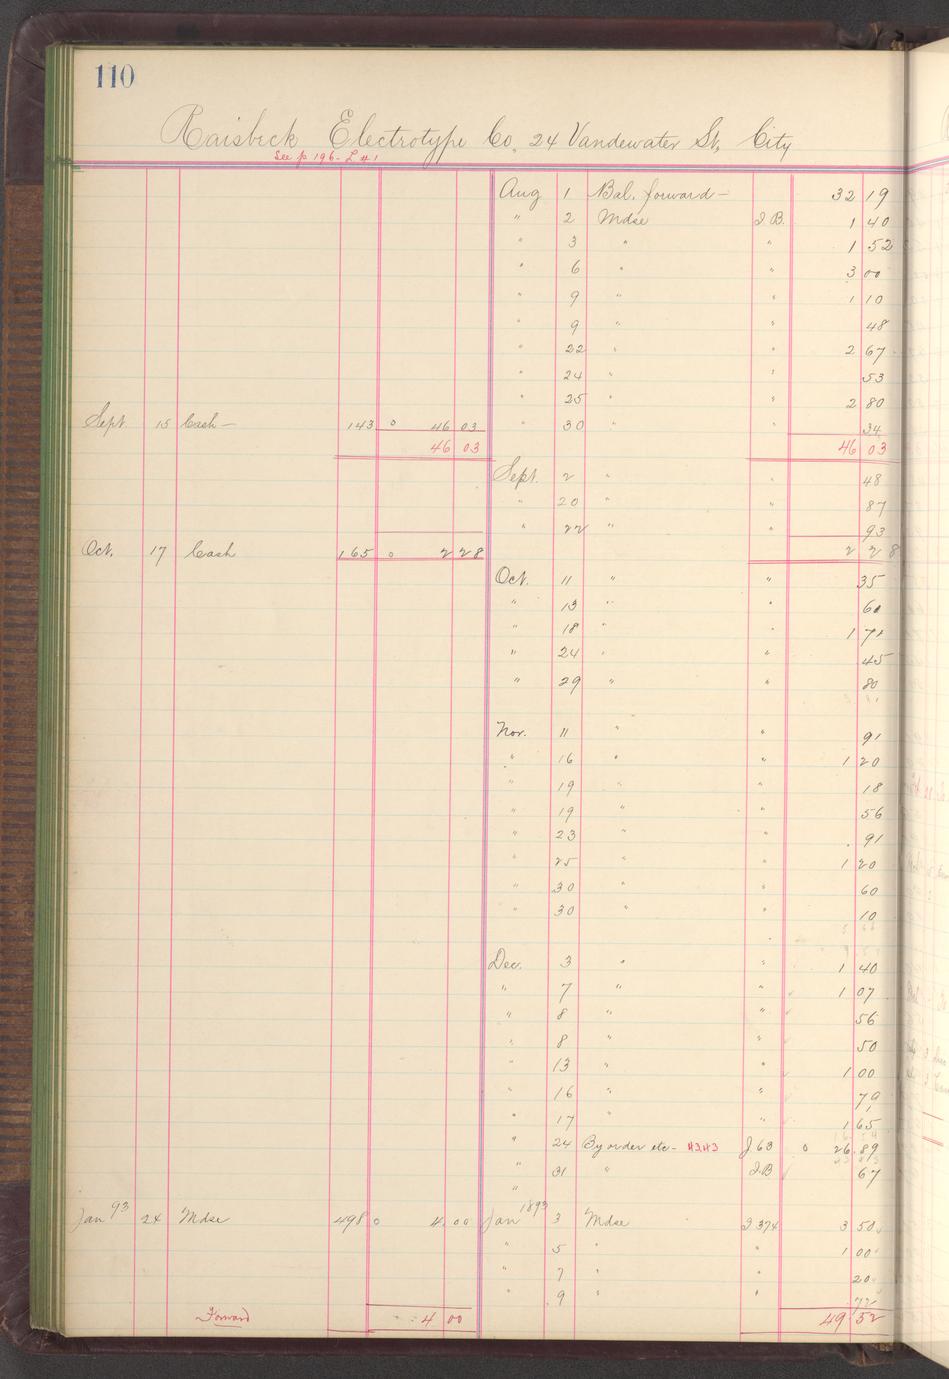 110
Raisbeck Electrotype Co, 24 Vandewater St, City
See p 196 - L #1
Aug 1 Bal. forward - 32 19
" 2 Mdse I.B. 1 40
" 3 " " 1 52
" 6 " " 3 00
" 9 " " 1 10
" 9 " " 48
" 22 " " 2 67
" 24 " " 53
" 25 " " 2 80
Sept. 15 Cash - 143 0 46 03 " 30 " " 34
46 03 46 03
Sept. 2 " " 48
" 20 " " 87
" 22 " " 93
Oct. 17 Cash 165 0 2 28 2 28
Oct. 11 " " 35
" 13 " " 60
" 18 " " 1 71
" 24 " " 45
" 29 " " 80
Nov. 11 " " 91
" 16 " " 1 20
" 19 " " 18
" 19 " " 56
" 23 " " 91
" 25 " " 1 20
" 30 " " 60
" 30 " " 10
Dec. 3 " " 1 40
" 7 " " 1 07
" 8 " " 56
" 8 " " 50
" 13 " " 1 00
" 16 " " 79
" 17 " " 1 65
" 24 By order etc - J.63 0 26 89
" 31 " I.B 67
"
Jan 93 24 Mdse 498 0 4 00 Jan 1893 3 Mdse I 374 3 50
" 5 " " 1 00
" 7 " " 20
" 9 " " 72
Forward 4 00 49 52